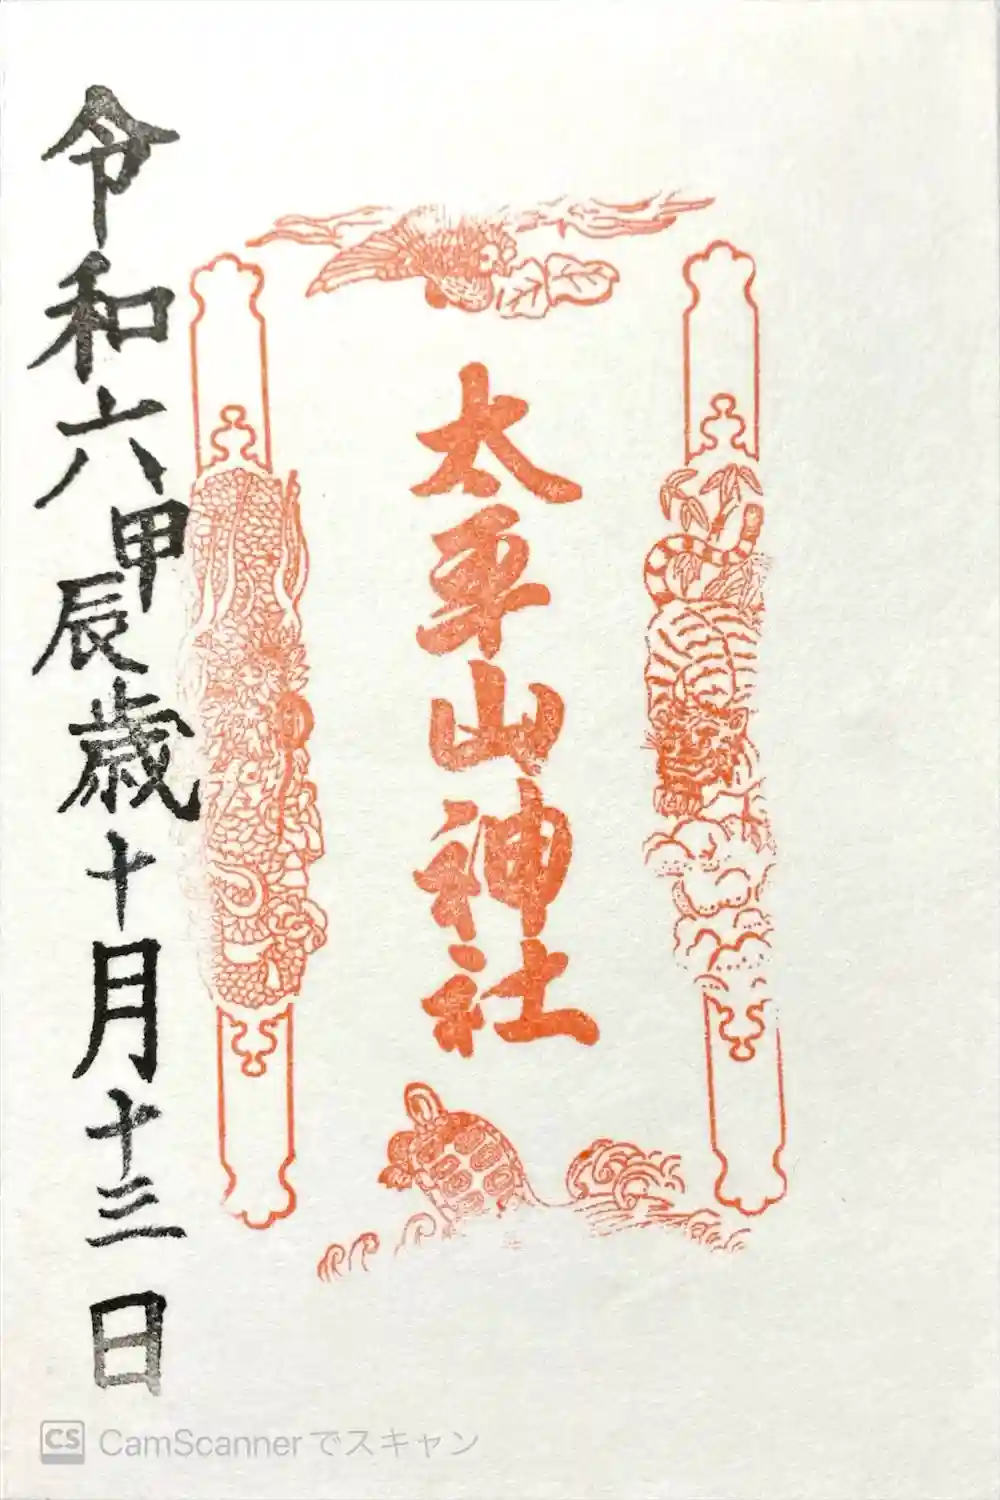 太平山神社
令和六甲辰歳十月十三日
CS CamScannerでスキャン